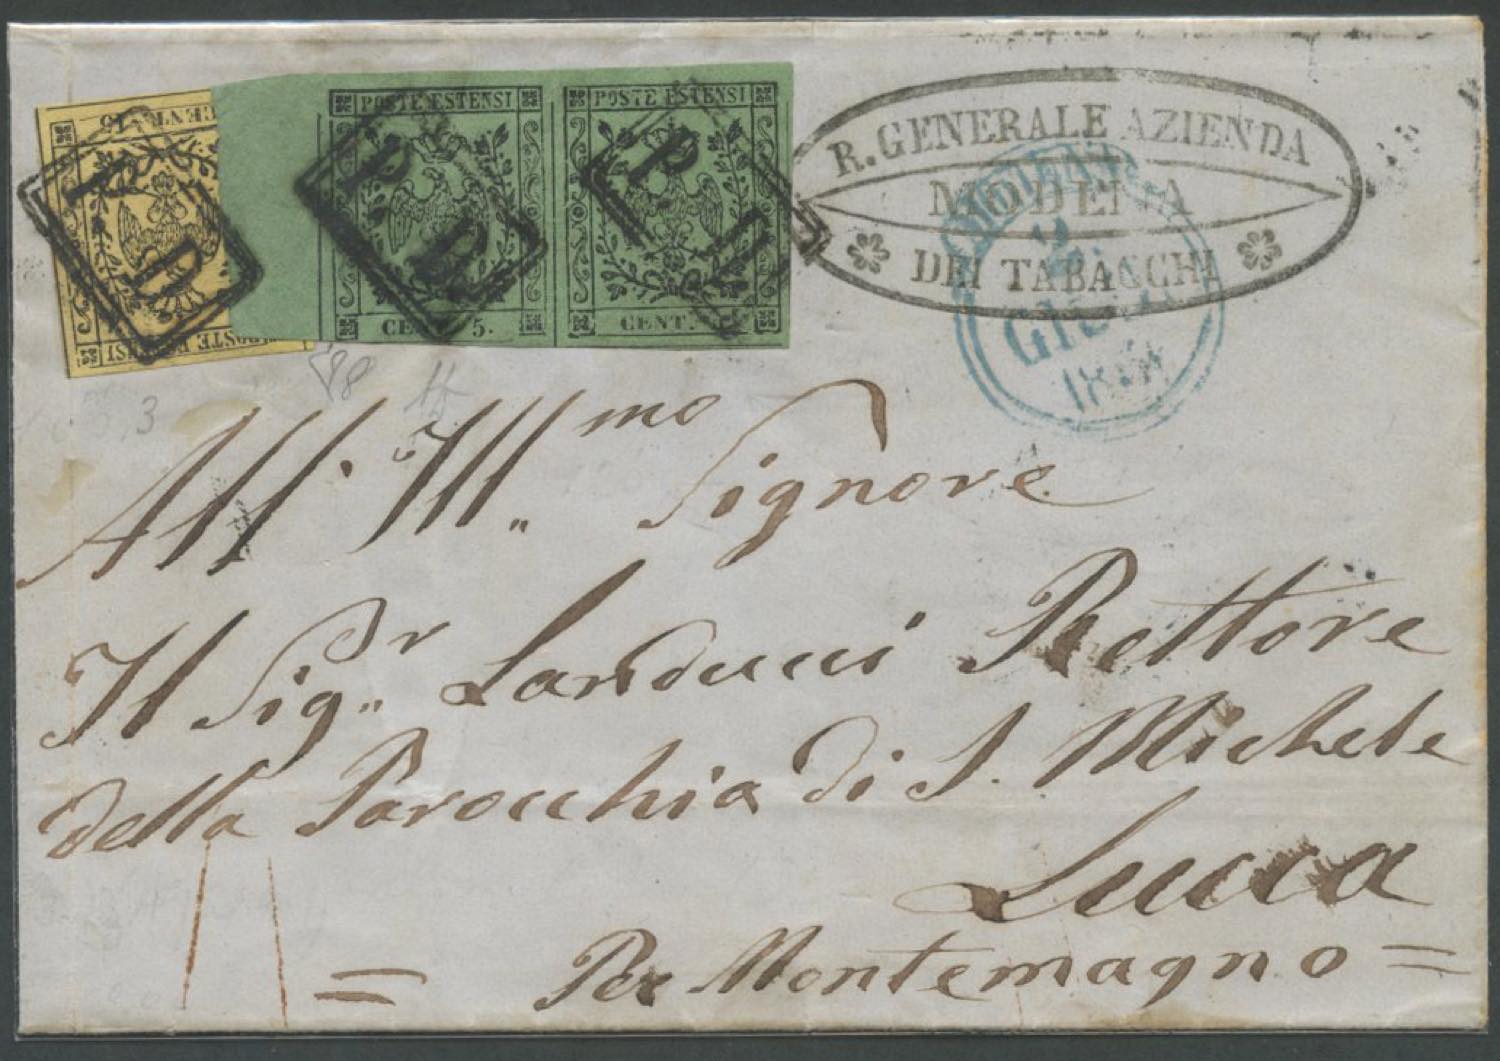 CENT. 15
POSTE ESTENSI
P
D
POSTE ESTENSI
CENT. 5.
P
D
POSTE ESTENSI
CENT.
P
R. GENERALE AZIENDA
MODENA
DEI TABACCHI
MODENA
2
GIU.
88
3
All' Ill.mo Signore
Il Sigr. Landucci Rettore
della Parocchia di S. Michele
Lucca
= Per Montemagno =